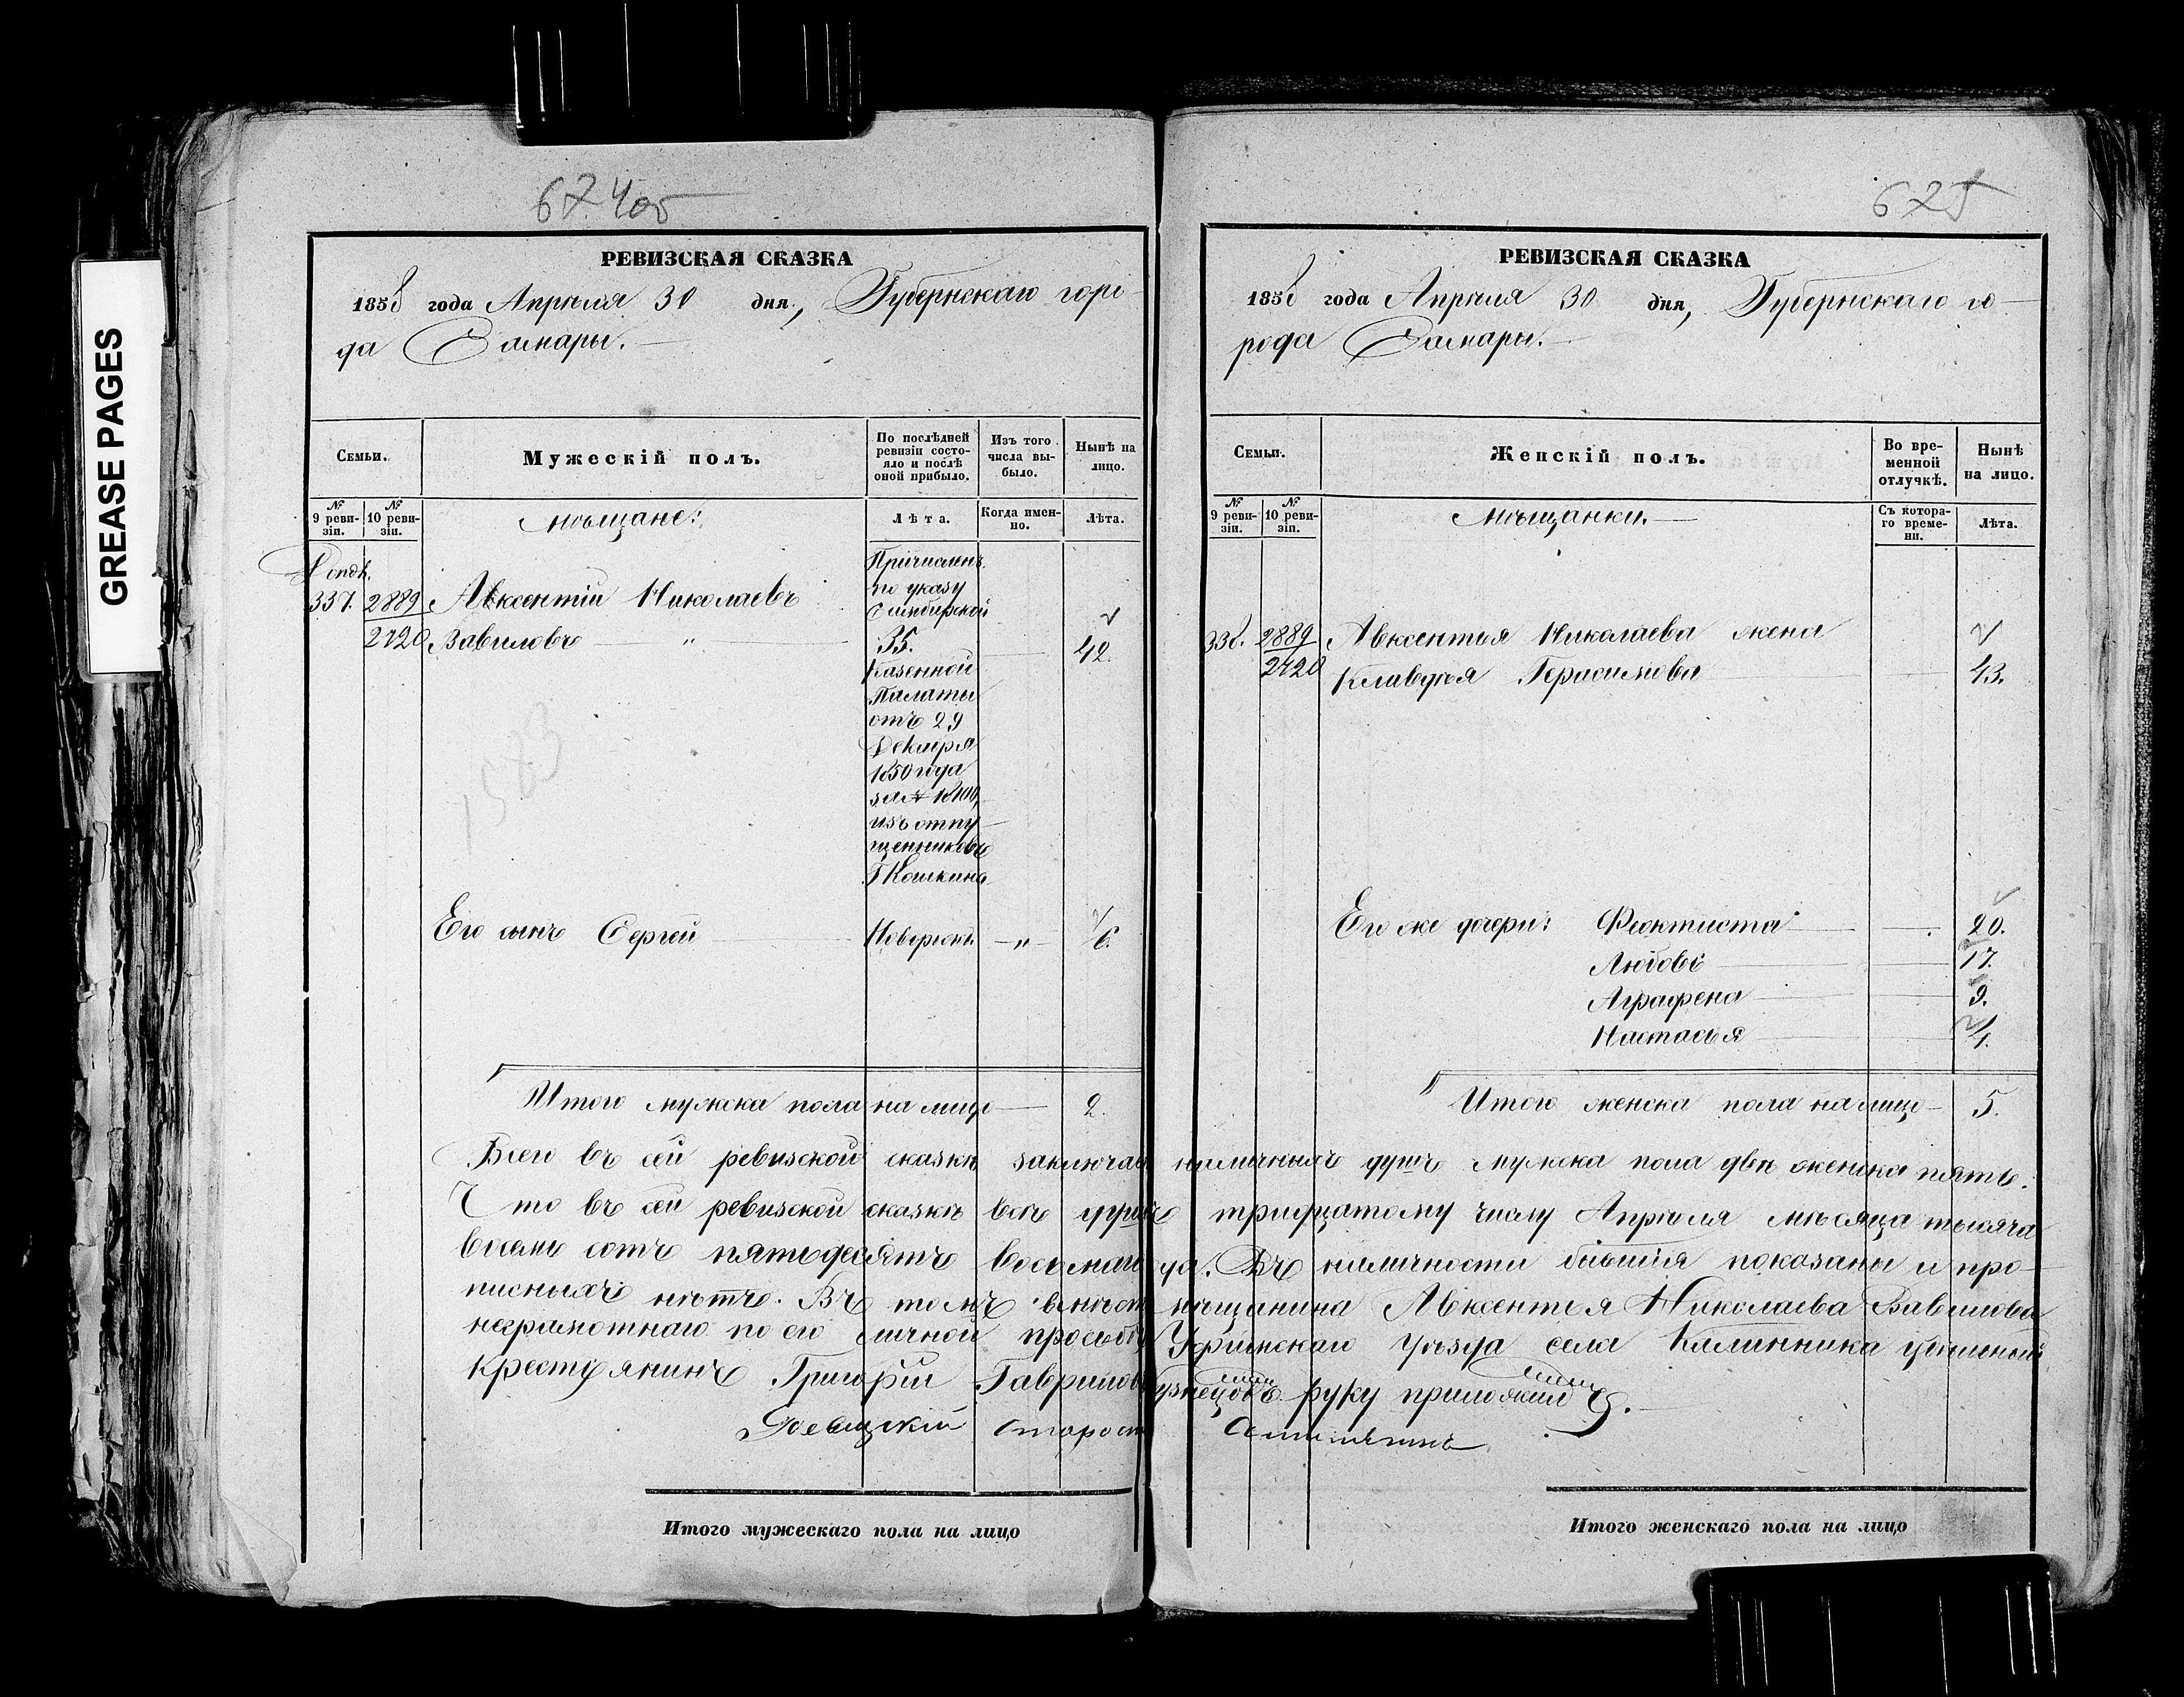 GREASE PAGES
674об
РЕВИЗСКАЯ СКАЗКА
1858 года Апрѣля 30 дня, Губернскаго горо-
да Самары.
Семьи.
Мужескій полъ.
По послѣдней
ревизіи состо-
яло и послѣ
оной прибыло.
Изъ того
числа вы-
было.
Нынѣ на
лицо.
№
9 реви-
зіи.
№
10 реви-
зіи.
мѣщане:
Лѣта.
Когда имен-
но.
Лѣта.
337. 2889 Авксентій Николаевъ
2720 Вавиловъ — " —
Причисленъ
по указу
Симбирской
35.
42.
Казенной
Палаты
отъ 29
Декабря
1850 года
за №
изъ отпу-
щенниковъ
Г Кошкина
1583
Его сынъ Сергей — Новорожд. — " — 6.
Итого мужска пола на лицо — 2.
675
РЕВИЗСКАЯ СКАЗКА
1858 года Апрѣля 30 дня, Губернскаго го-
рода Самары.
Семьи.
Женскій полъ.
Во вре-
менной
отлучкѣ.
Нынѣ
на лицо.
№
9 реви-
зіи.
№
10 реви-
зіи.
Мѣщанки.
Съ котора-
го време-
ни.
Лѣта.
338. 2889 Авксентья Николаева жена
2720 Клавдія Герасимова — 43.
Его же дочери: Феоктиста — 20.
Любовь — 17.
Аграфена — 9.
Настасья — 4.
Итого женска пола на лицо — 5.
Всего въ сей ревизской сказкѣ заключае наличныхъ душъ мужска пола двѣ женска пять.
Что въ сей ревизской сказкѣ всѣ души тридцатому числу Апрѣля мѣсяца тысяча
восемь сотъ пятьдесятъ восьмаго да. Въ наличности бывшія показаны и про-
писныхъ нѣтъ. Въ томъ вмѣсто мѣщанина Авксентья Николаева Вавилова
неграмотнаго по его личной прозьбѣ Уфимскаго уѣзда села Калинника
крестьянинъ Григорій Гавриловъ знецовъ руку приложилъ
старост
Итого мужескаго пола на лицо
Итого женскаго пола на лицо